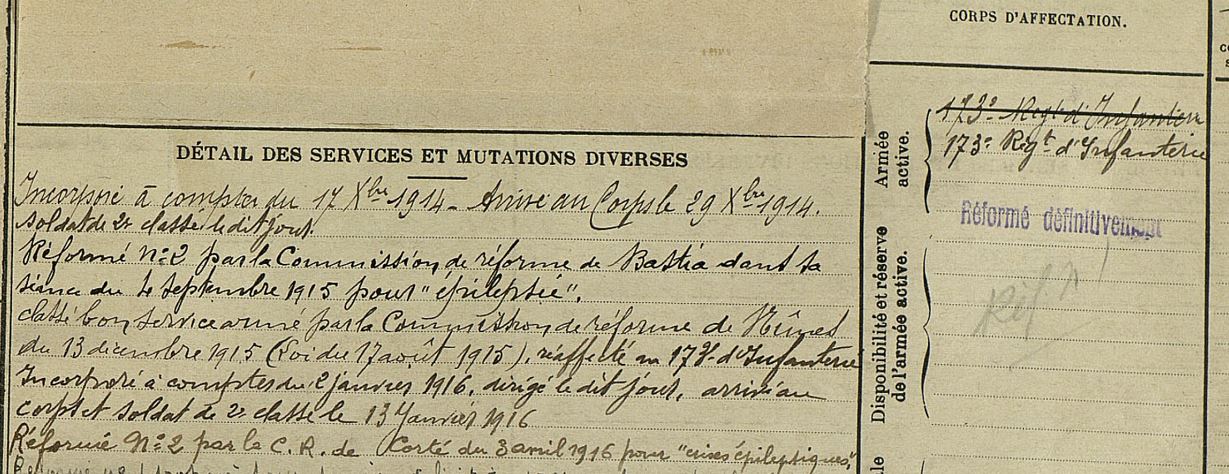 CORPS D'AFFECTATION.
173e Regt d'Infanterie
173e Regt d'Infanterie
Armée active.
Réformé définitivement
Réf
Disponibilité et réserve de l'armée active.
DÉTAIL DES SERVICES ET MUTATIONS DIVERSES
Incorporé à compter du 17 Xbre 1914 - Arrivé au Corps le 29 Xbre 1914.
soldat de 2e classe ledit jour.
Réformé No 2 par la Commission de réforme de Bastia dans sa
séance du 4 septembre 1915 pour "épilepsie".
classé bon service armé par la Commission de réforme de Nîmes
du 13 décembre 1915 (Loi du 17 août 1915), réaffecté au 173e d'Infanterie
Incorporé à compter du 2 janvier 1916, dirigé ledit jour, arrivé au
corps et soldat de 2e classe le 13 Janvier 1916
Réformé No 2 par la C. R. de Corté du 3 avril 1916 pour "crises épileptiques",